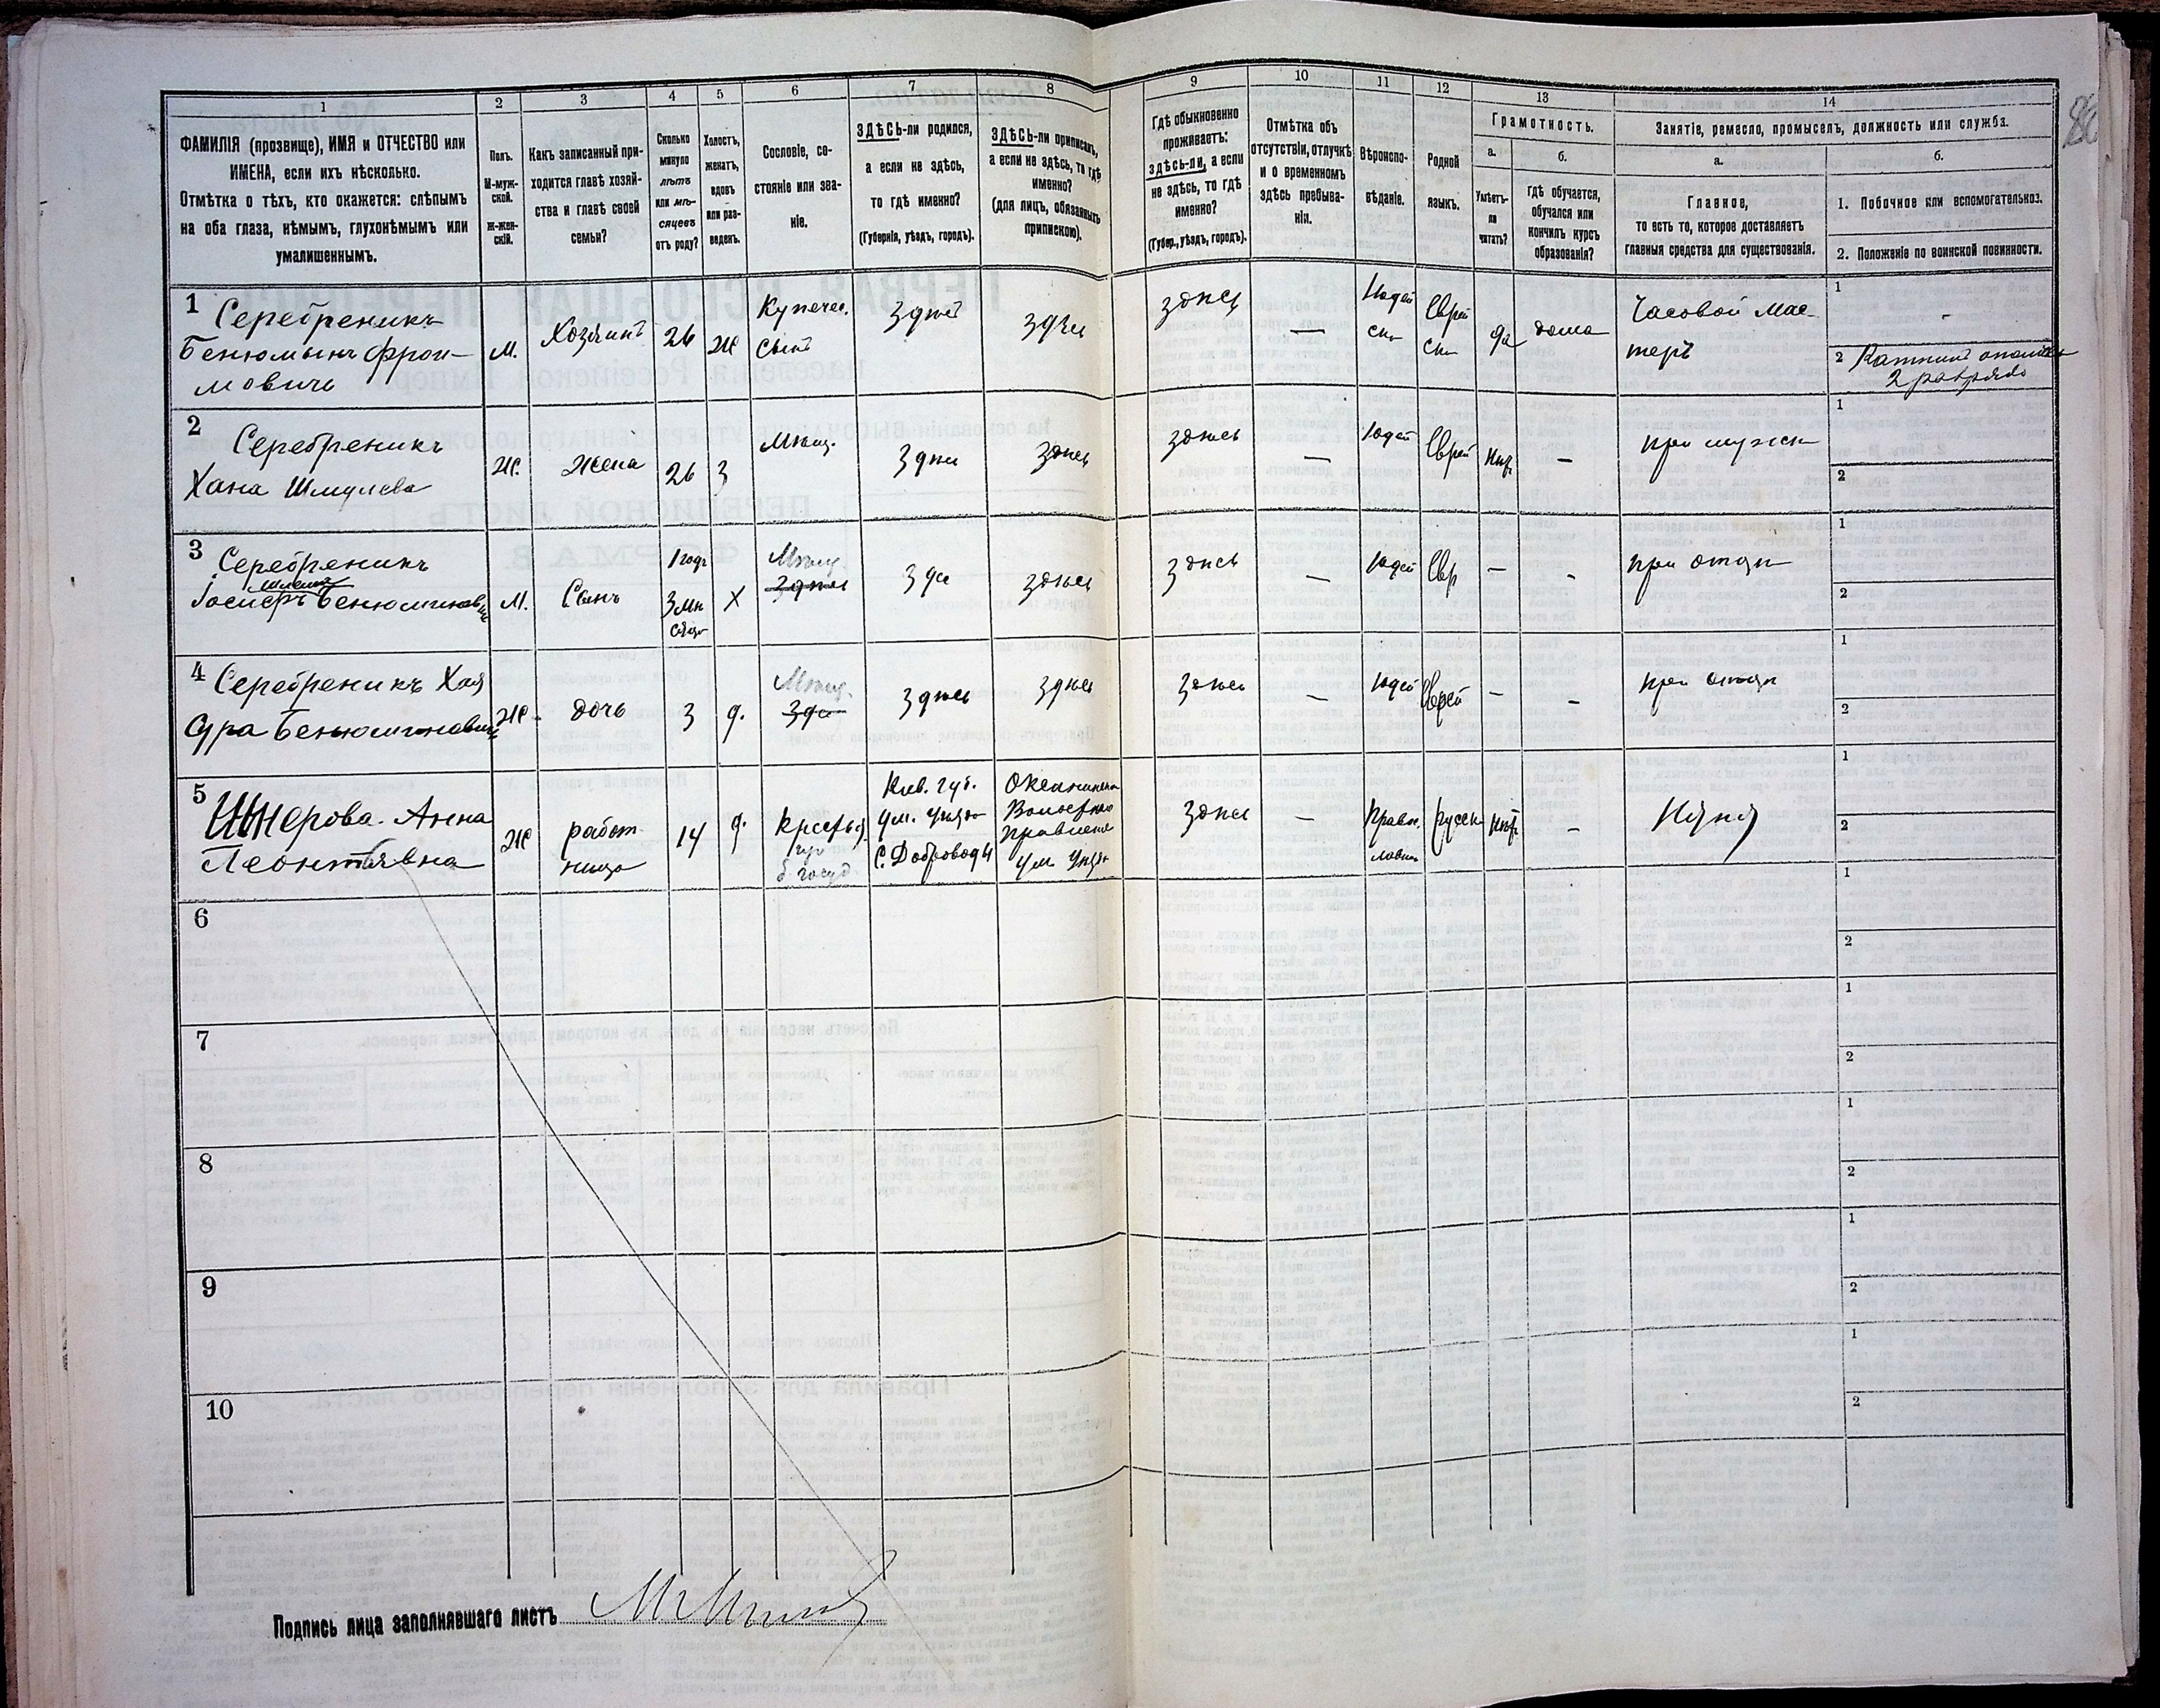 1 2 3 4 5 6 7 8 9 10 11 12 13 14
ФАМИЛІЯ (прозвище), ИМЯ и ОТЧЕСТВО или
ИМЕНА, если ихъ нѣсколько.
Отмѣтка о тѣхъ, кто окажется: слѣпымъ
на оба глаза, нѣмымъ, глухонѣмымъ или
умалишеннымъ.
Полъ.
М-муж-
ской.
Ж-жен-
скій.
Какъ записанный при-
ходится главѣ хозяй-
ства и главѣ своей
семьи?
Сколько
минуло
лѣтъ
или мѣ-
сяцевъ
отъ роду?
Холостъ,
женатъ,
вдовъ
или раз-
веденъ.
Сословіе, со-
стояніе или зва-
ніе.
ЗДѢСЬ-ли родился,
а если не здѣсь,
то гдѣ именно?
(Губернія, уѣздъ, городъ).
ЗДѢСЬ-ли приписанъ,
а если не здѣсь, то гдѣ
именно?
(для лицъ, обязанныхъ
припискою).
Гдѣ обыкновенно
проживаетъ:
здѣсь-ли, а если
не здѣсь, то гдѣ
именно?
(Губер., уѣздъ, городъ).
Отмѣтка объ
отсутствіи, отлучкѣ
и о временномъ
здѣсь пребыва-
ніи.
Вѣроиспо-
вѣданіе.
Родной
языкъ.
Грамотность.
а.
Умѣетъ-
ли
читать?
б.
гдѣ обучается,
обучался или
кончилъ курсъ
образованія?
Занятіе, ремесло, промыселъ, должность или служба.
а.
Главное,
то есть то, которое доставляетъ
главныя средства для существованія.
б.
1. Побочное или вспомогательноз.
2. Положеніе по воинской повинности.
1 Серебреникъ
Бенюминъ Фрои-
мовичъ
М.
Хозяинъ
26
Ж
Купечес.
сынъ
здѣсь
Іюдей
ск
Еврей
ск
да
дома
Часовой Мас-
теръ
1
2 Ратникъ ополчен
2 разряда
2 Серебреникъ
Хана Шмулева
Ж. Жена 26 З Мѣщ. здѣсь здѣсь
здѣсь — Іюдей Еврей нѣт — при мужѣ
1
2
3 Серебреникъ
Бенюминович
М. Сынъ
1 годъ
3 мѣ
сяца
Х
Мѣщ.
здѣсь
здѣсь — Іюдей Евр — - при отцѣ
1
2
4 Серебреникъ Хая
Сура Бенюминовна
Ж. дочь 3 д.
Мѣщ.
здѣсь здѣсь
здѣсь — Іюдей Еврей — — при отцѣ
1
2
5
Анна
Леонтьевна
Ж
работ
ница
14 д.
Крестья
б. госуд.
Кіев. губ.
Ум. уѣзда
С. Доброводы
Волостного
правленія
Ум уѣзда
здѣсь —
Право
славн
русск нѣт — Няня
1
2
6
1
2
7
1
2
8
1
2
9
1
2
10
1
2
Подпись лица заполнявшаго листъ